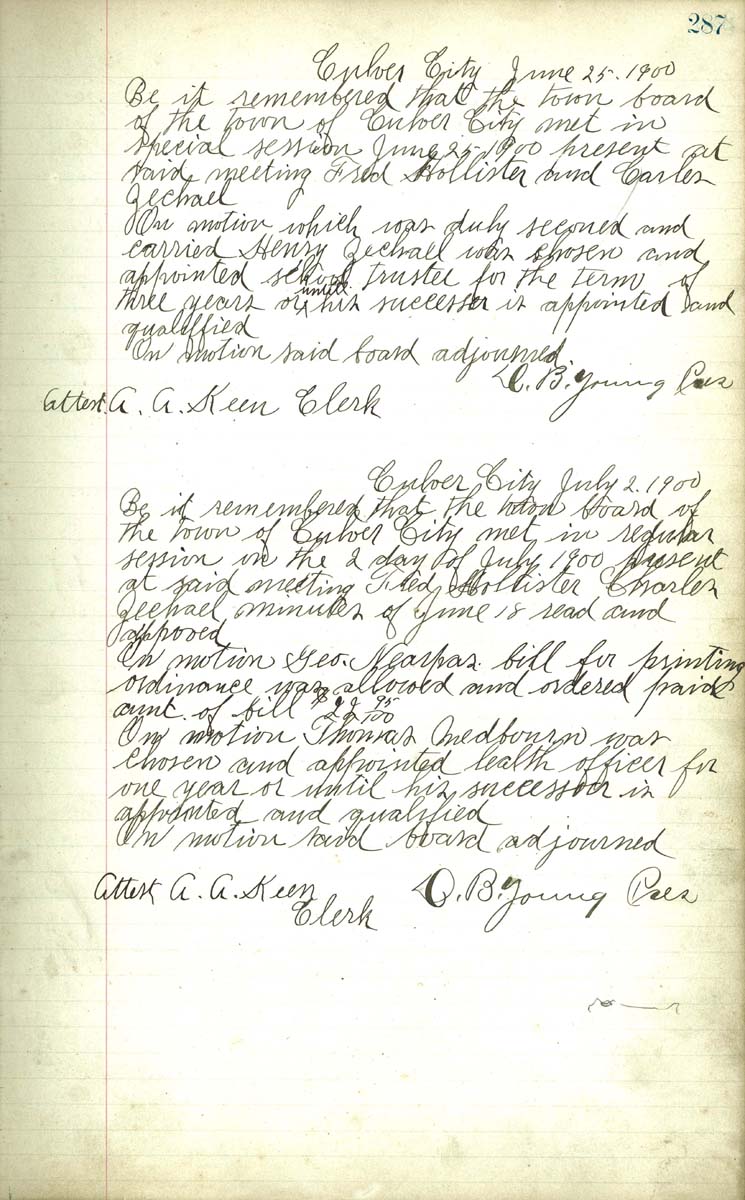 287
Culver City June 25. 1900
Be it remembered that the town board
of the town of Culver City met in
special session June 25 1900 present at
said meeting Fred Hollister and Carles
Zechael
On motion which was duly seconed and
carried Henry Zechael was chosen and
appointed school trustee for the term of
three years or untill his successer is appointed and
qualiffied
On motion said board adjourned
O. B. Young Pres
Attest. A. A. Keen Clerk
Culver City July 2. 1900
Be it remembered that the town board of
the town of Culver City met in regular
session on the 2 day of July 1900 present
at said meeting Fred Hollister Charles
Zechael, minutes of June 18 read and
approved
On motion Geo. Nearpas. bill for printing
ordinance was allowed and ordered paid
amt. of bill $22 95/100
On motion Thomas Medbourn was
chosen and appointed health officer for
one year or until his successor is
appointed and qualified
On motion said board adjourned
Attest A. A. Keen O. B. Young Pres
Clerk